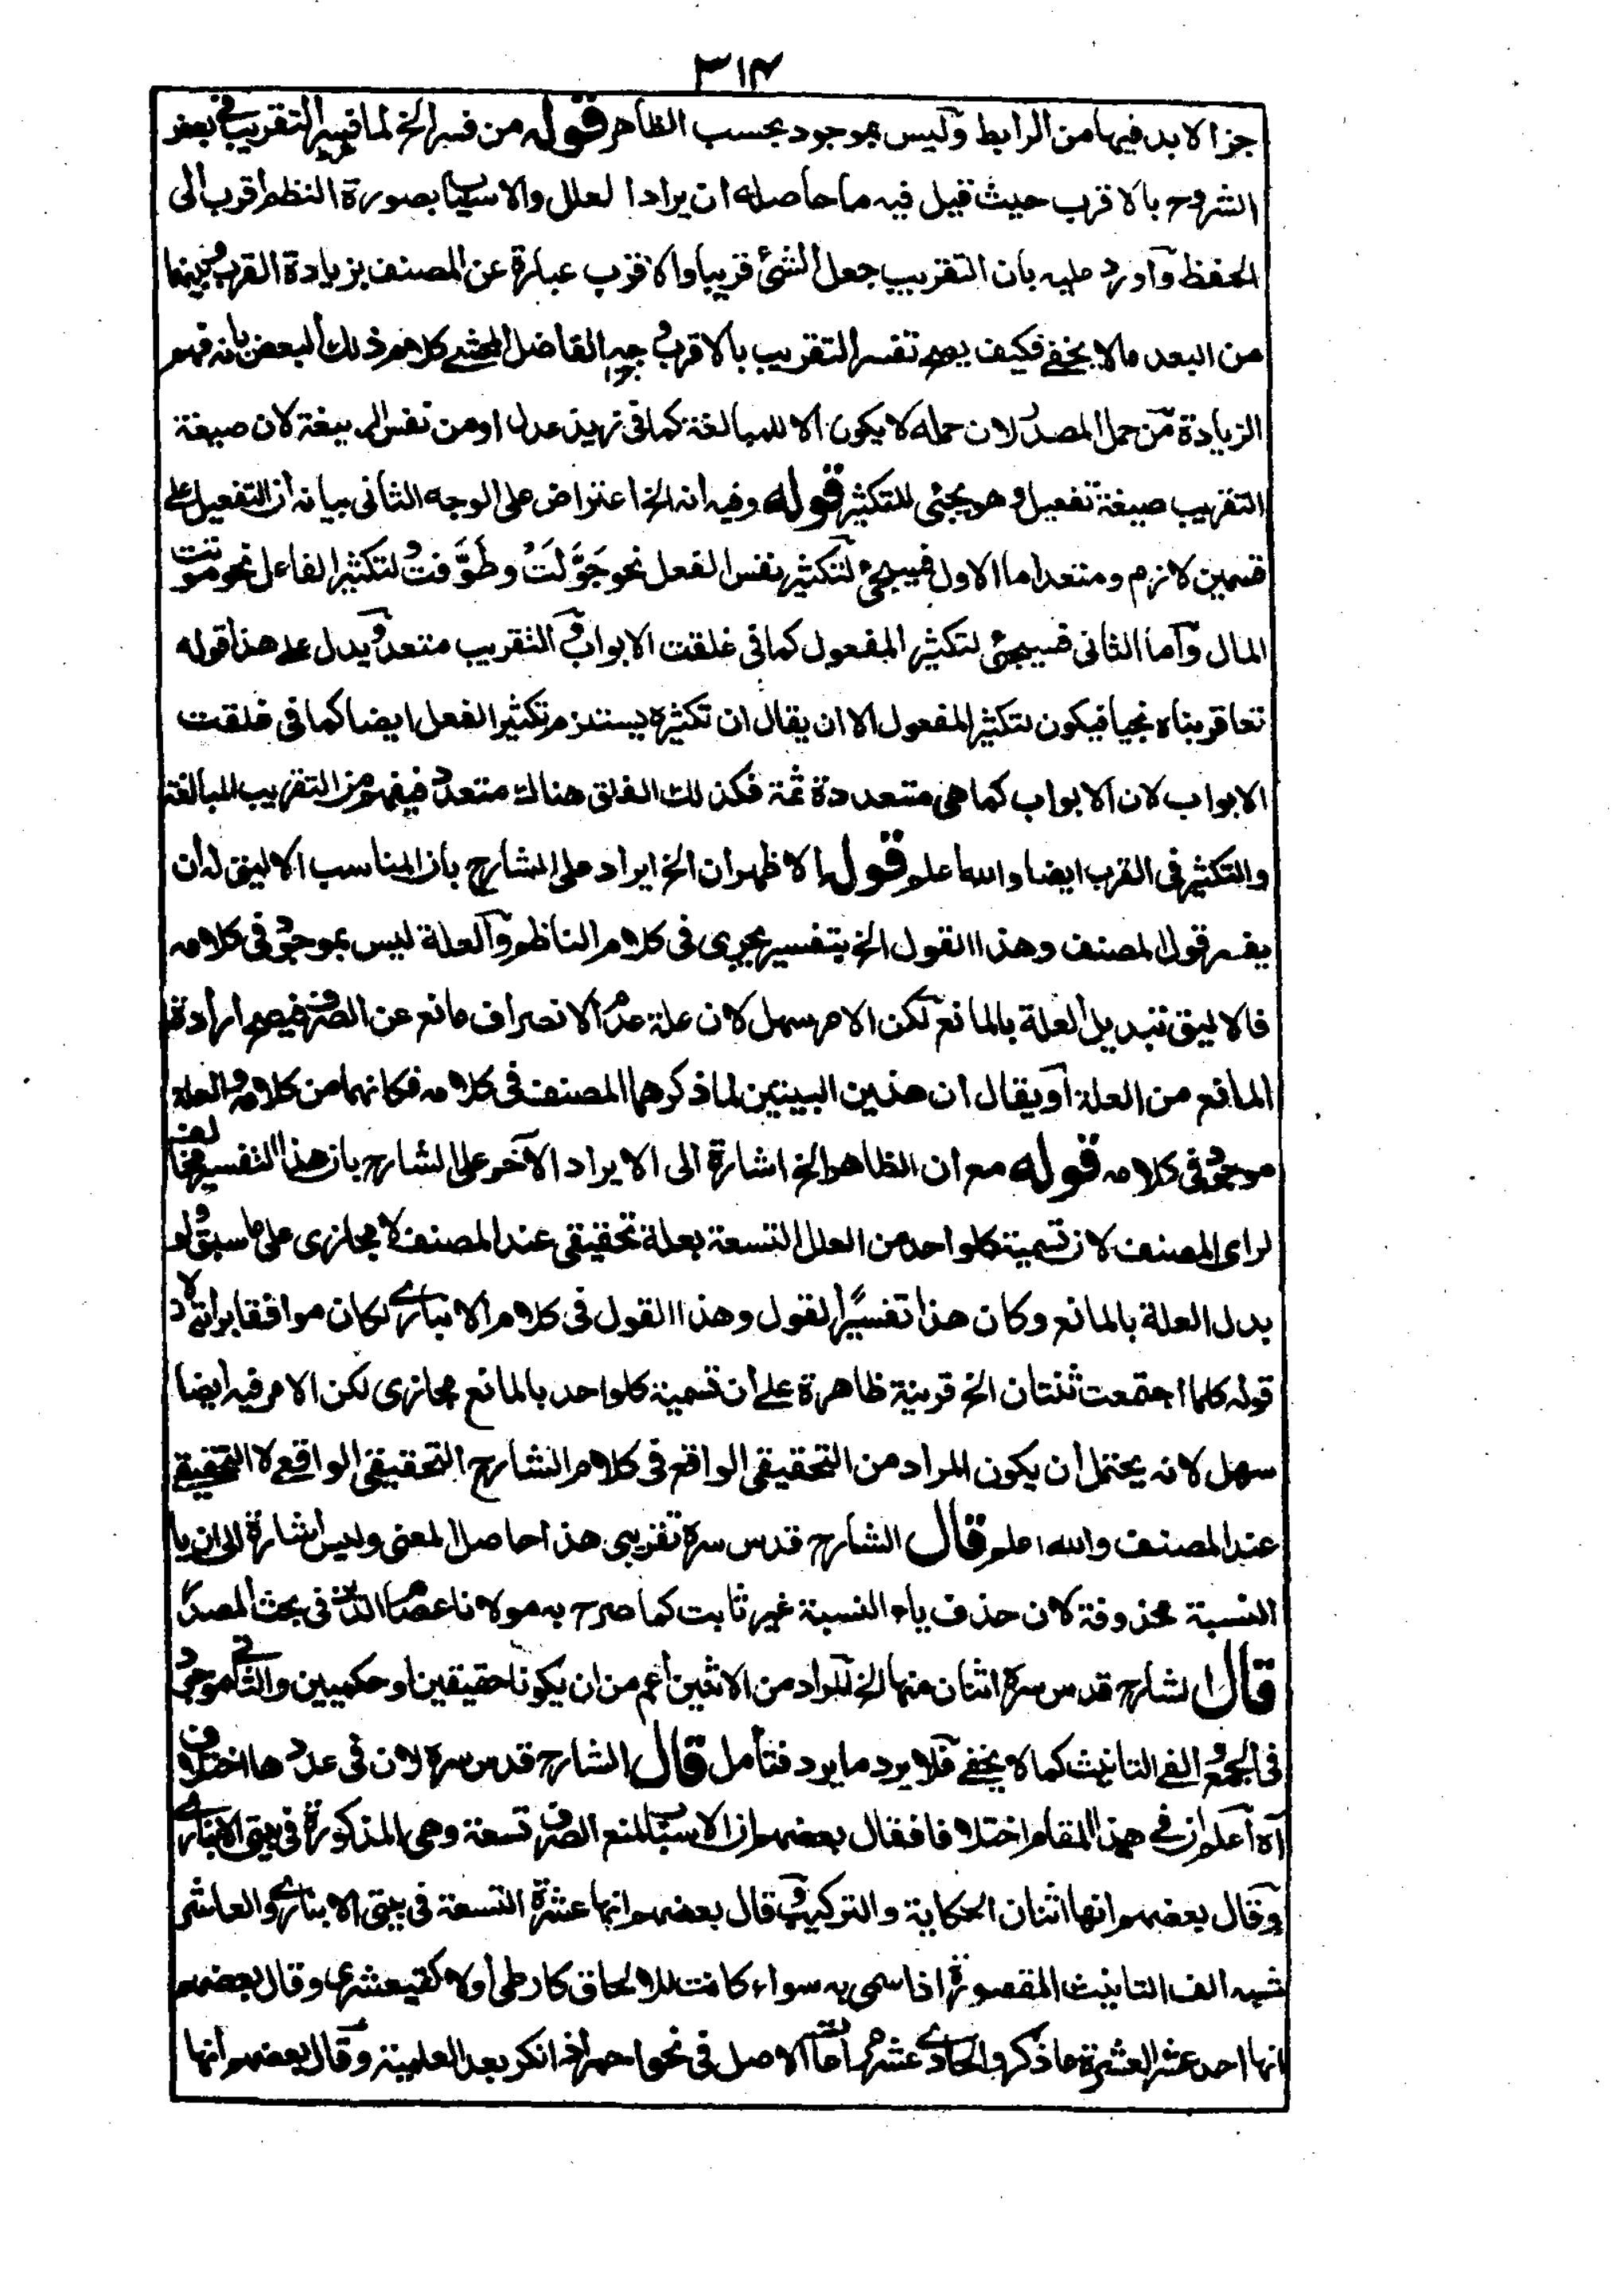 ٣١٤
جزا لابد فيها من الرابط وليس بموجود بحسب الظاهر قوله من فسر الخ لما فسر التقريب في بعض
الشروح بالاقرب حيث قيل فيه ما حاصله ان يراد العلل والاسباب بصورة النظم اقرب الى
الحفظ واورد عليه بان التقريب جعل الشئ قريبا والاقرب عبارة عن المصنف بزيادة القرب وبينهما
من البعد مالا يخفى فكيف يصح تفسير التقريب بالاقرب وجه الفاضل المحشى كلام ذلك البعض بانه فهم
الزيادة من حمل المصدر لان حمله لا يكون الا للمبالغة كما فى زيد عدل او من نفس الصيغة لان صيغة
التقريب صيغة تفعيل وهو يجئى للتكثير قوله وفيه انه الخ اعتراض على الوجه الثانى بيانه ان التفعيل على
قسمين لازم ومتعد اما الاول فيجئ لتكثير نفس الفعل نحو جَوَّلتُ وطَوَّفتُ ولتكثير الفاعل نحو موتت
المال واما الثانى فيجئى لتكثير المفعول كما فى غلقت الابواب والتقريب متعد ويدل على هذا قوله
تعا قربناه نجيا فيكون لتكثير المفعول الا ان يقال ان تكثيره يستلزم تكثير الفعل ايضا كما فى غلقت
الابواب لان الابواب كما هى متعددة ثمة فكذلك الغلق هناك متعدد فيفهم من التقريب المبالغة
والتكثير فى القرب ايضا والله اعلم قوله الاظهر ان الخ ايراد على الشارح بان المناسب الاليق له ان
يفسر قول المصنف وهذا القول الخ بتفسير يجرى فى كلام الناظم والعلة ليس بموجود فى كلامه
فالاليق تبديل العلة بالمانع لكن الامر سهل لان علة عدم الانصراف مانع عن الصرف فيصح ارادة
المانع من العلة او يقال ان هذين البيتين لما ذكرهما المصنف فى كلامه فكانهما من كلامه والعلة
موجود فى كلامه قوله مع ان الظاهر الخ اشارة الى الايراد الآخر على الشارح بان هذا التفسير مخالف
لراى المصنف لان تسمية كلواحد من العلل التسعة بعلة تحقيقى عند المصنف لا مجازى على ما سبق ولو
بدل العلة بالمانع وكان هذا تفسيرًا لقول وهذا القول فى كلام الانبارى لكان موافقا برايه لا د
قوله كلما اجتمعت ثنتان الخ قرينة ظاهرة على ان تسمية كلواحد بالمانع مجازى لكن الامر فيه ايضا
سهل لانه يحتمل ان يكون المراد من التحقيقى الواقع فى كلام الشارح التحقيقى الواقعى لا التحقيقى
عند المصنف والله اعلم قال الشارح قدس سره تقريبى هذا حاصل المعنى وليس اشارة الى ان يا
النسبة محذوفة لان حذف ياء النسبة غير ثابت كما صرح به مولانا عصام الدين فى بحث المصدر
قال الشارح قدس سره اثنتان منها الخ المراد من الاثنين اعم من ان يكونا حقيقين او حكميين والثانى موجود
فى الجمع والفى التانيث كما لا يخفى فلا يرد ما يرد فتأمل قال الشارح قدس سره لان فى عددها اختلافا
آه اعلم ان فى هذا المقام اختلافا فقال بعضهم ان الاسباب لمنع الصرف تسعة وهى المذكورة فى بيتى الانبارى
وقال بعضهم انها اثنان الحكاية والتركيب وقال بعضهم انها عشرة التسعة فى بيتى الانبارى والعاشر
شبه الف التانيث المقصورة اذا سمى به سواء كانت للالحاق كارطى اولا كقبعثرى وقال بعضهم
انها احد عشر العشرة ما ذكر والحادى عشر مراعاة الاصل فى نحو احمر اذا نكر بعد العلمية وقال بعضهم انها